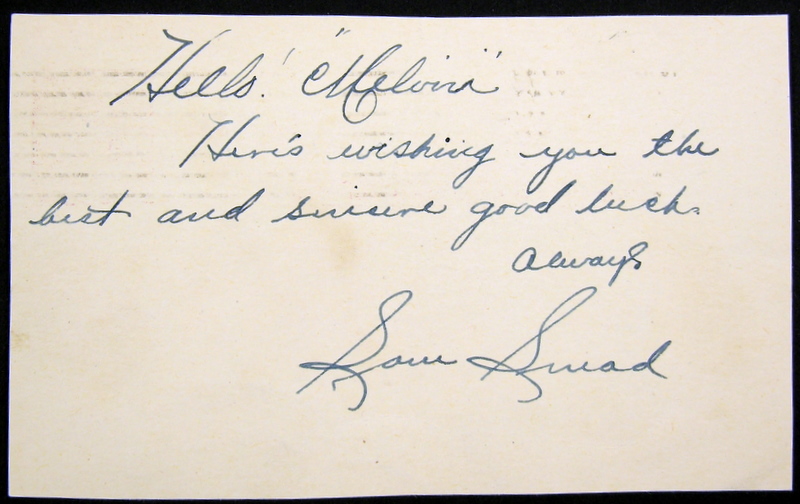 Hello! "Melvin"
Here's wishing you the
best and sincere good luck.
Always
Sam Snead